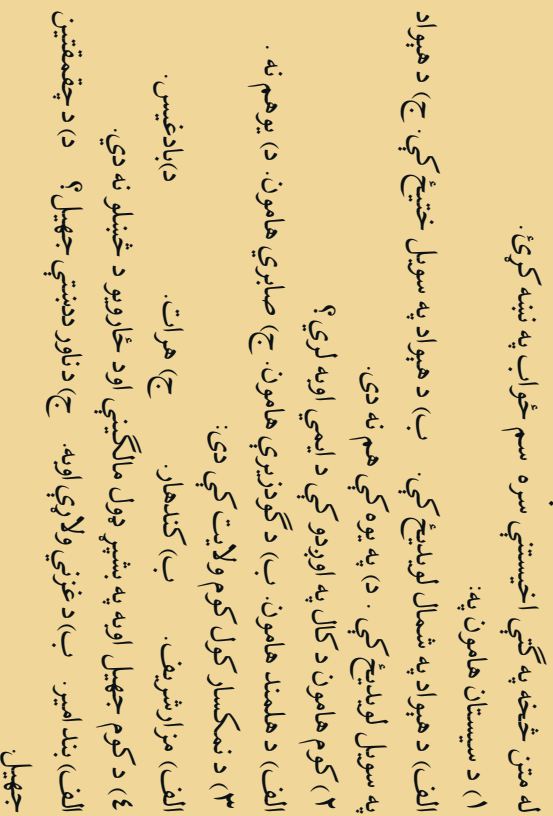 له متن څخه په گټې اخیستنې سره سم ځواب په نښه کړئ.
۱) د سیستان هامون په:
الف) د هیواد په شمال لویدیځ کې. ب) د هیواد په سویل ختیځ کې. ج) د هیواد
په سویل لویدیځ کې . د) په یوه کې هم نه دی.
۲) کوم هامون د کال په اوږدو کې دایمې اوبه لري؟
الف) د هلمند هامون. ب) د گودزیري هامون. ج) صابري هامون. د) یو هم نه .
۳) د نمکسار کول کوم ولایت کې دی:
الف) مزارشریف. ب) کندهار. ج) هرات. د)بادغیس.
٤) د کوم جهیل اوبه په بشپړ ډول مالگینې اود څارویو د څښلو نه دي.
الف) بند امیر. ب) د غزني ولاړې اوبه. ج) د ناور ددښتې جهیل؟ د) د چقمقتین
جهیل.